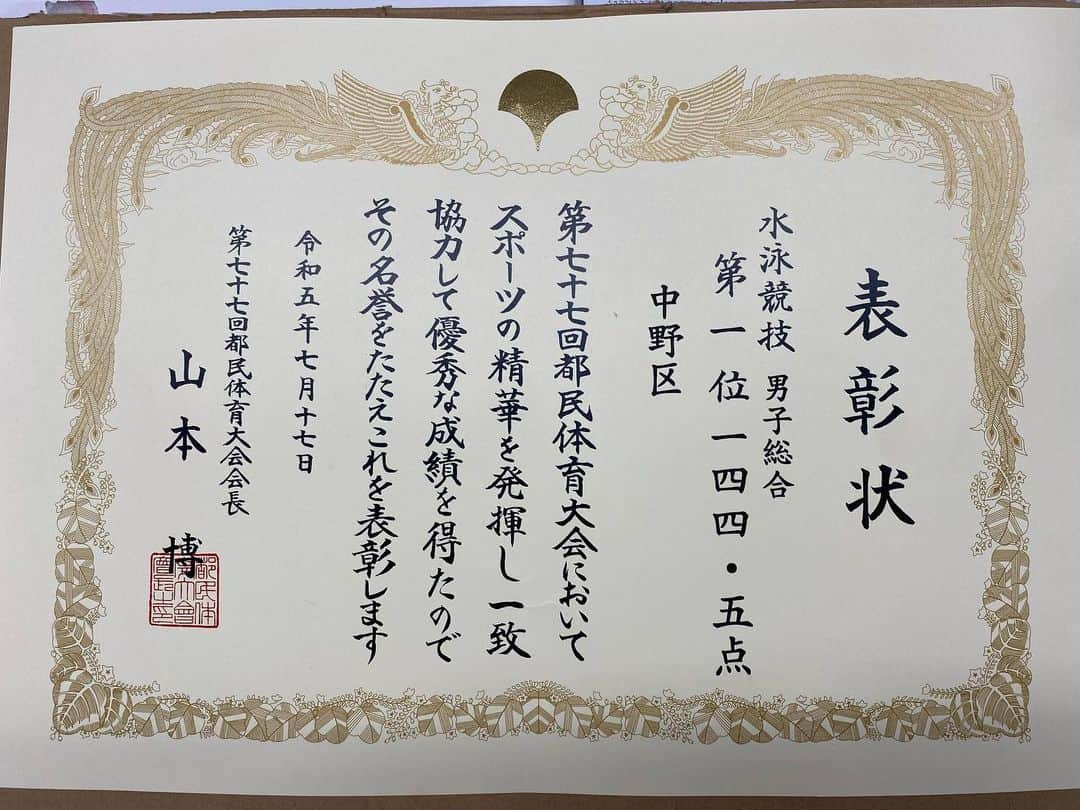 表彰状
水泳競技 男子総合
第一位 一四四・五点
中野区
第七十七回都民体育大会において
スポーツの精華を発揮し一致
協力して優秀な成績を得たので
その名誉をたたえこれを表彰します
令和五年七月十七日
第七十七回都民体育大会会長
山本 博